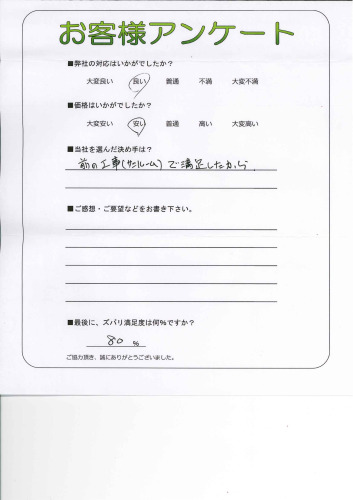 お客様アンケート
■弊社の対応はいかがでしたか？
大変良い 良い 普通 不満 大変不満
■価格はいかがでしたか？
大変安い 安い 普通 高い 大変高い
■当社を選んだ決め手は？
前の工事(サンルーム)で満足したから
■ご感想・ご要望などをお書き下さい。
■最後に、ズバリ満足度は何%ですか？
80 %
ご協力頂き、誠にありがとうございました。